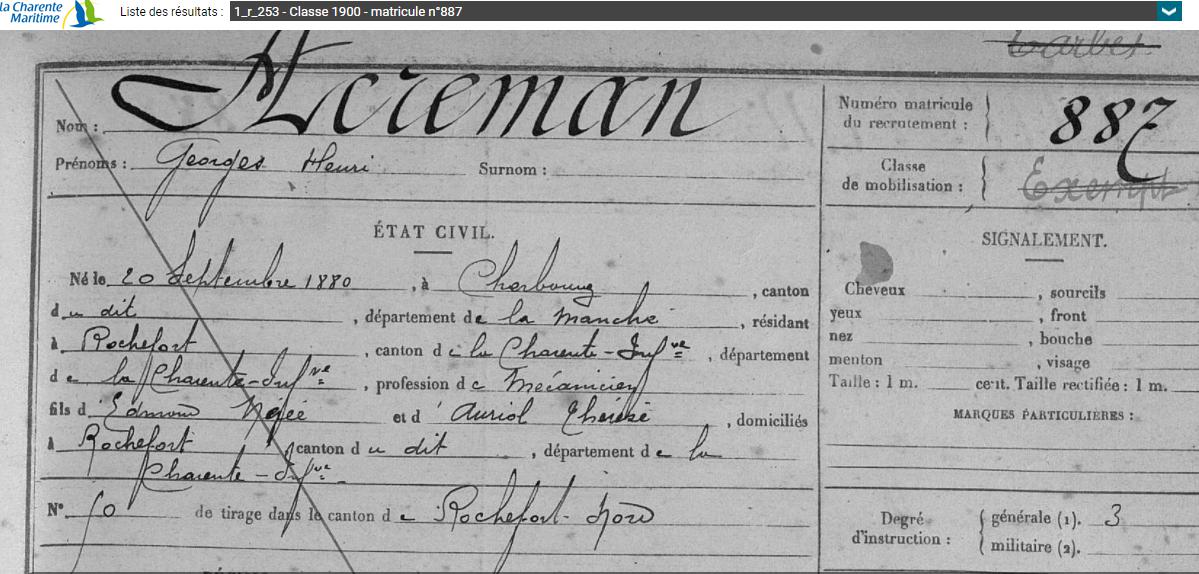 la Charente
Maritime
Liste des résultats : 1_r_253 - Classe 1900 - matricule n°887
Tarbes
Nom : Horeman
Prénoms : Georges Henri Surnom :
Numéro matricule
du recrutement : 887
Classe
de mobilisation : Exempt
ÉTAT CIVIL.
Né le 20 Septembre 1880, à Cherbourg, canton
du dit, département de la Manche, résidant
à Rochefort, canton de la Charente-Infre, département
de la Charente-Infre, profession de Mécanicien
fils d Edmond et d' Auriol Thérèse, domiciliés
à Rochefort, canton du dit, département de la
Charente-Infre
N° de tirage dans le canton de Rochefort-Nord
SIGNALEMENT.
Cheveux , sourcils
yeux , front
nez , bouche
menton , visage
Taille : 1 m. cent. Taille rectifiée : 1 m.
MARQUES PARTICULIÈRES :
Degré
d'instruction :
générale (1). 3
militaire (2).